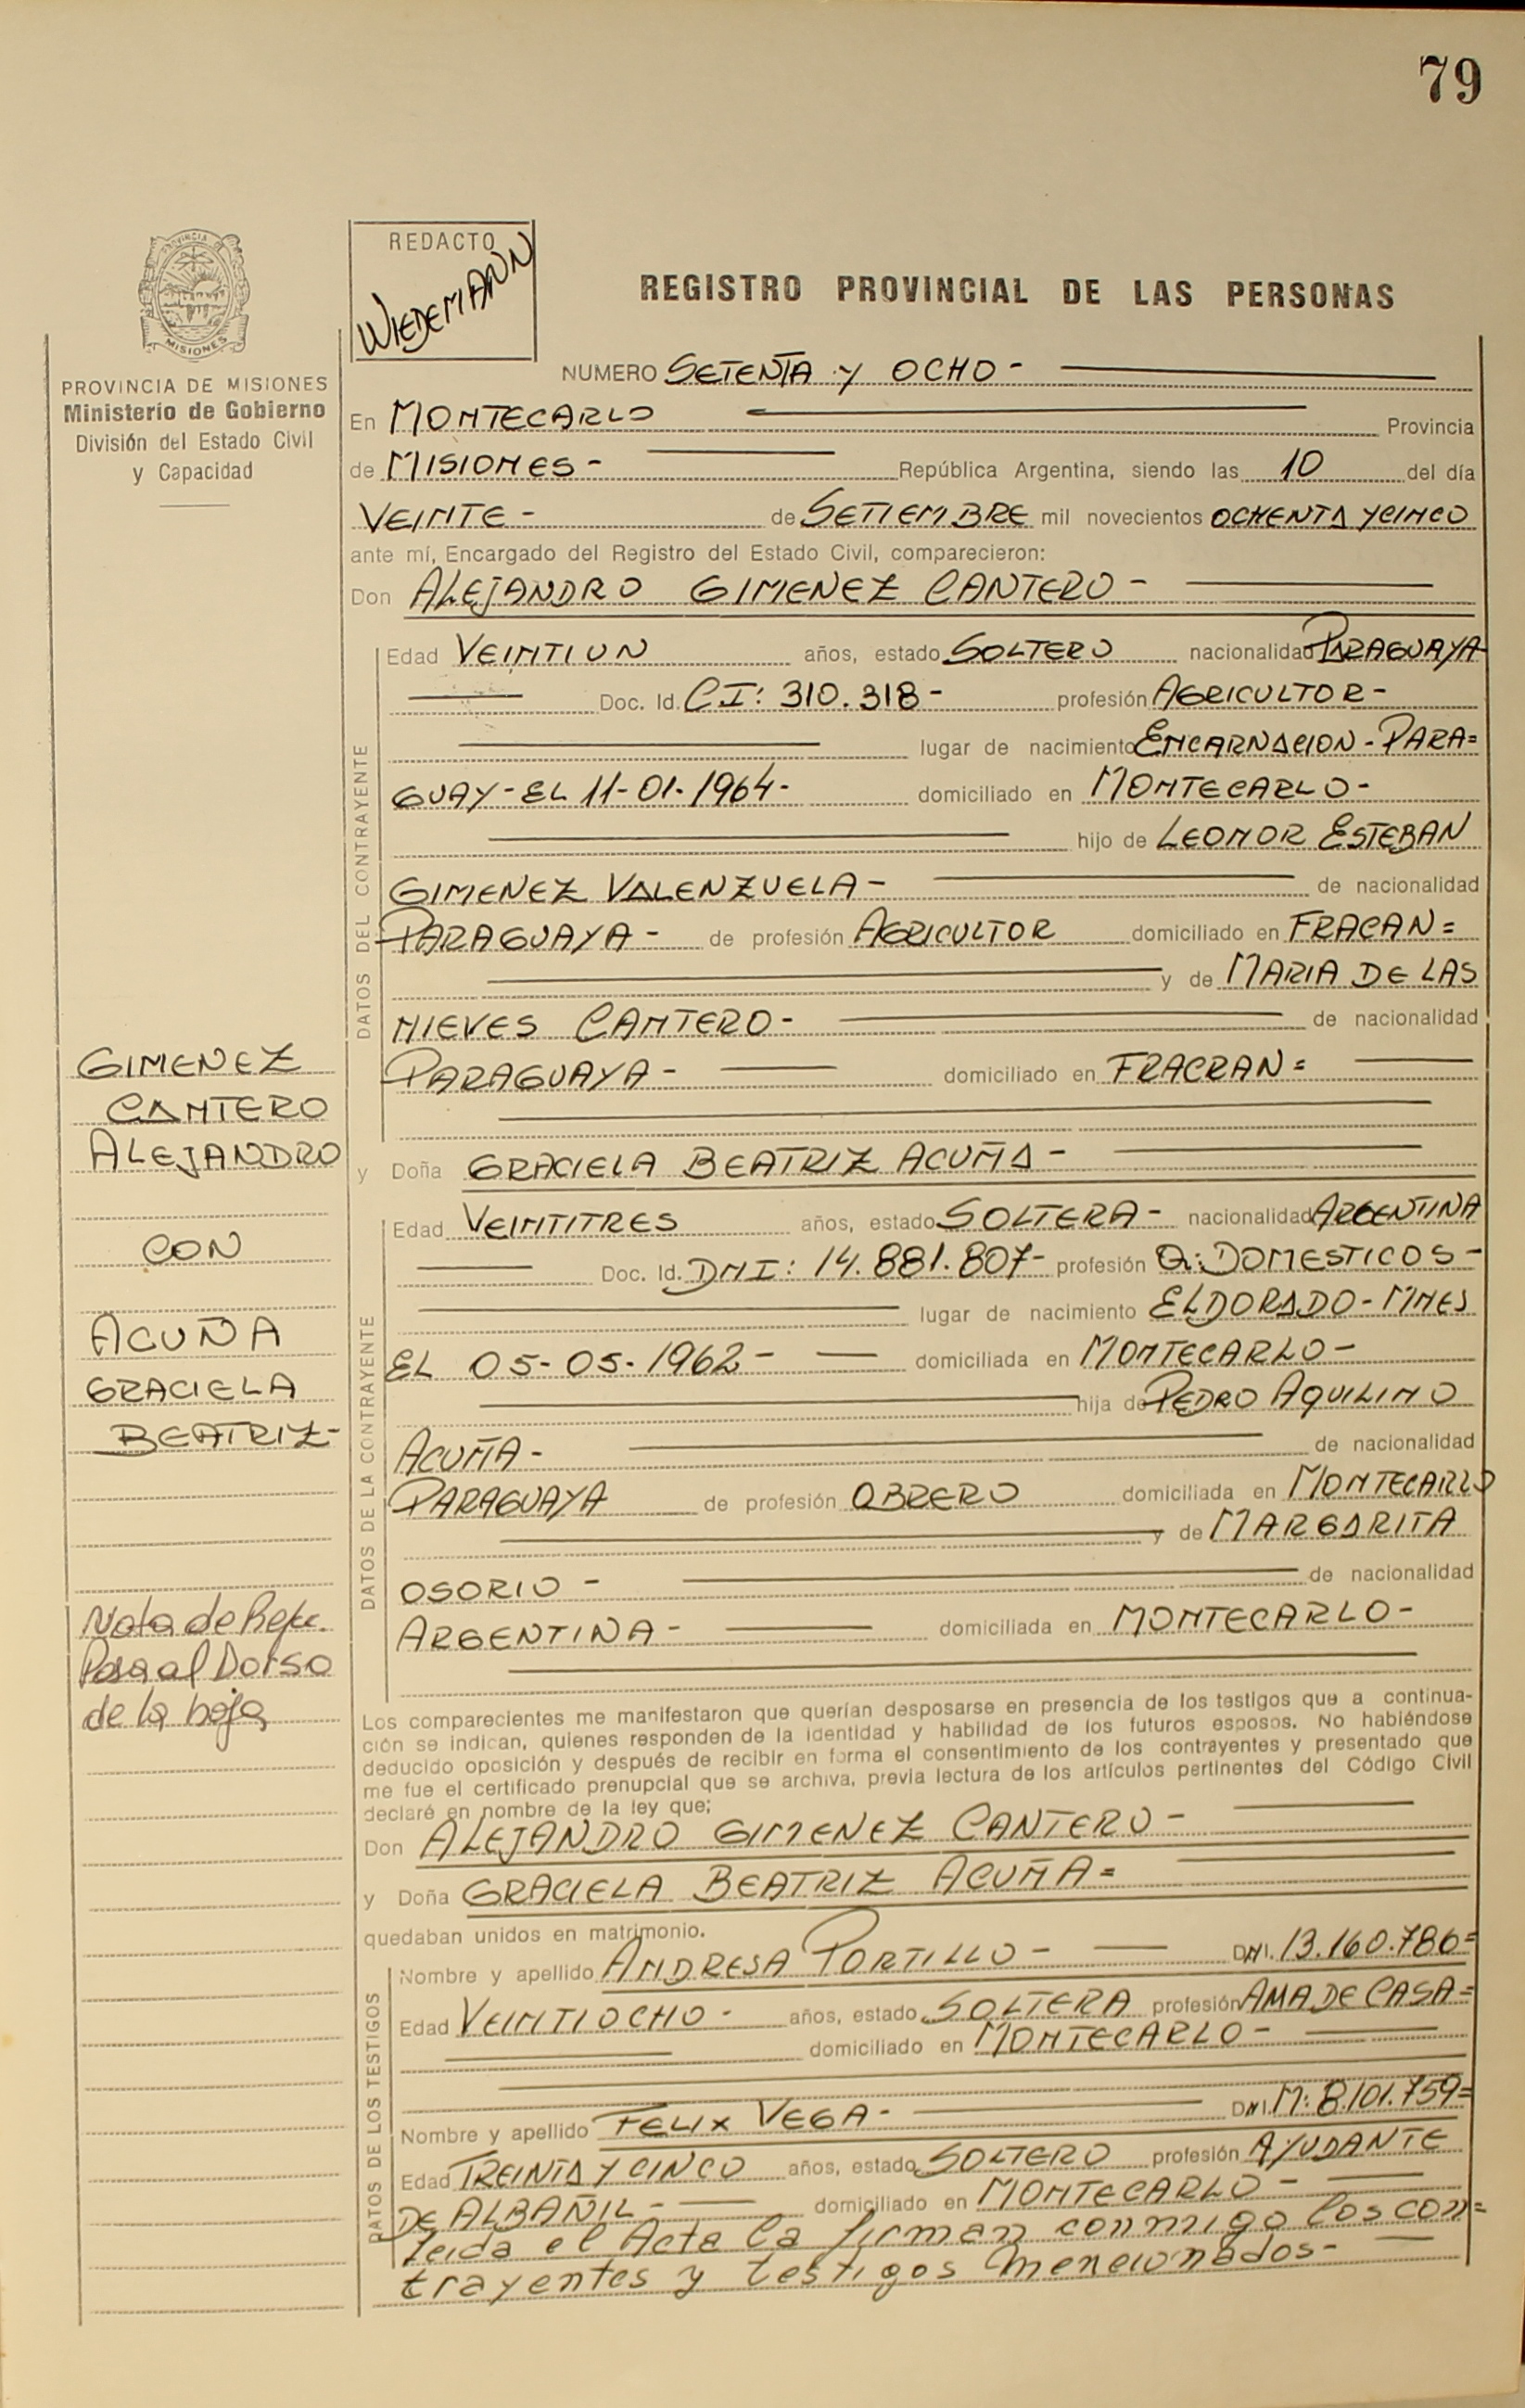 79
PROVINCIA
MISIONES
PROVINCIA DE MISIONES
Ministerio de Gobierno
División del Estado Civil
y Capacidad
REDACTO
WIEDEMANN
REGISTRO PROVINCIAL DE LAS PERSONAS
NUMERO SETENTA Y OCHO -
En MONTECARLO Provincia
de MISIONES - República Argentina, siendo las 10 del día
VEINTE - de SETIEMBRE mil novecientos OCHENTA Y CINCO
ante mí, Encargado del Registro del Estado Civil, comparecieron:
Don ALEJANDRO GIMENEZ CANTERO -
DATOS DEL CONTRAYENTE
Edad VEINTIUN años, estado SOLTERO nacionalidad PARAGUAYA
Doc. Id. CI: 310.318 - profesión AGRICULTOR -
lugar de nacimiento ENCARNACION - PARA=
GUAY - EL 11-01-1964 - domiciliado en MONTECARLO -
hijo de LEONOR ESTEBAN
GIMENEZ VALENZUELA - de nacionalidad
PARAGUAYA - de profesión AGRICULTOR domiciliado en FRACAN =
y de MARIA DE LAS
NIEVES CANTERO - de nacionalidad
PARAGUAYA - domiciliado en FRACRAN =
y Doña GRACIELA BEATRIZ ACUÑA -
DATOS DE LA CONTRAYENTE
Edad VEINTITRES años, estado SOLTERA - nacionalidad ARGENTINA
Doc. Id. DNI: 14.881.807 - profesión Q: DOMESTICOS -
lugar de nacimiento ELDORADO - MNES
EL 05-05-1962 - domiciliada en MONTECARLO -
hija de PEDRO AQUILINO
ACUÑA - de nacionalidad
PARAGUAYA de profesión OBRERO domiciliada en MONTECARLO
y de MARGARITA
OSORIO - de nacionalidad
ARGENTINA - domiciliada en MONTECARLO -
GIMENEZ
CANTERO
ALEJANDRO
CON
ACUÑA
GRACIELA
BEATRIZ -
Nota de Refe.
Pasa al Dorso
de la hoja
Los comparecientes me manifestaron que querían desposarse en presencia de los testigos que a continua-
ción se indican, quienes responden de la identidad y habilidad de los futuros esposos. No habiéndose
deducido oposición y después de recibir en forma el consentimiento de los contrayentes y presentado que
me fue el certificado prenupcial que se archiva, previa lectura de los artículos pertinentes del Código Civil
declaré en nombre de la ley que;
Don ALEJANDRO GIMENEZ CANTERO -
y Doña GRACIELA BEATRIZ ACUÑA =
quedaban unidos en matrimonio.
DATOS DE LOS TESTIGOS
Nombre y apellido ANDRESA PORTILLO - DNI. 13.160.786 =
Edad VEINTIOCHO - años, estado SOLTERA profesión AMA DE CASA =
domiciliado en MONTECARLO -
Nombre y apellido FELIX VEGA - DNI. M: 8.101.759 =
Edad TREINTA Y CINCO años, estado SOLTERO profesión AYUDANTE
DE ALBAÑIL - domiciliado en MONTECARLO -
Leida el Acta la firman conmigo los con=
trayentes y testigos mencionados -